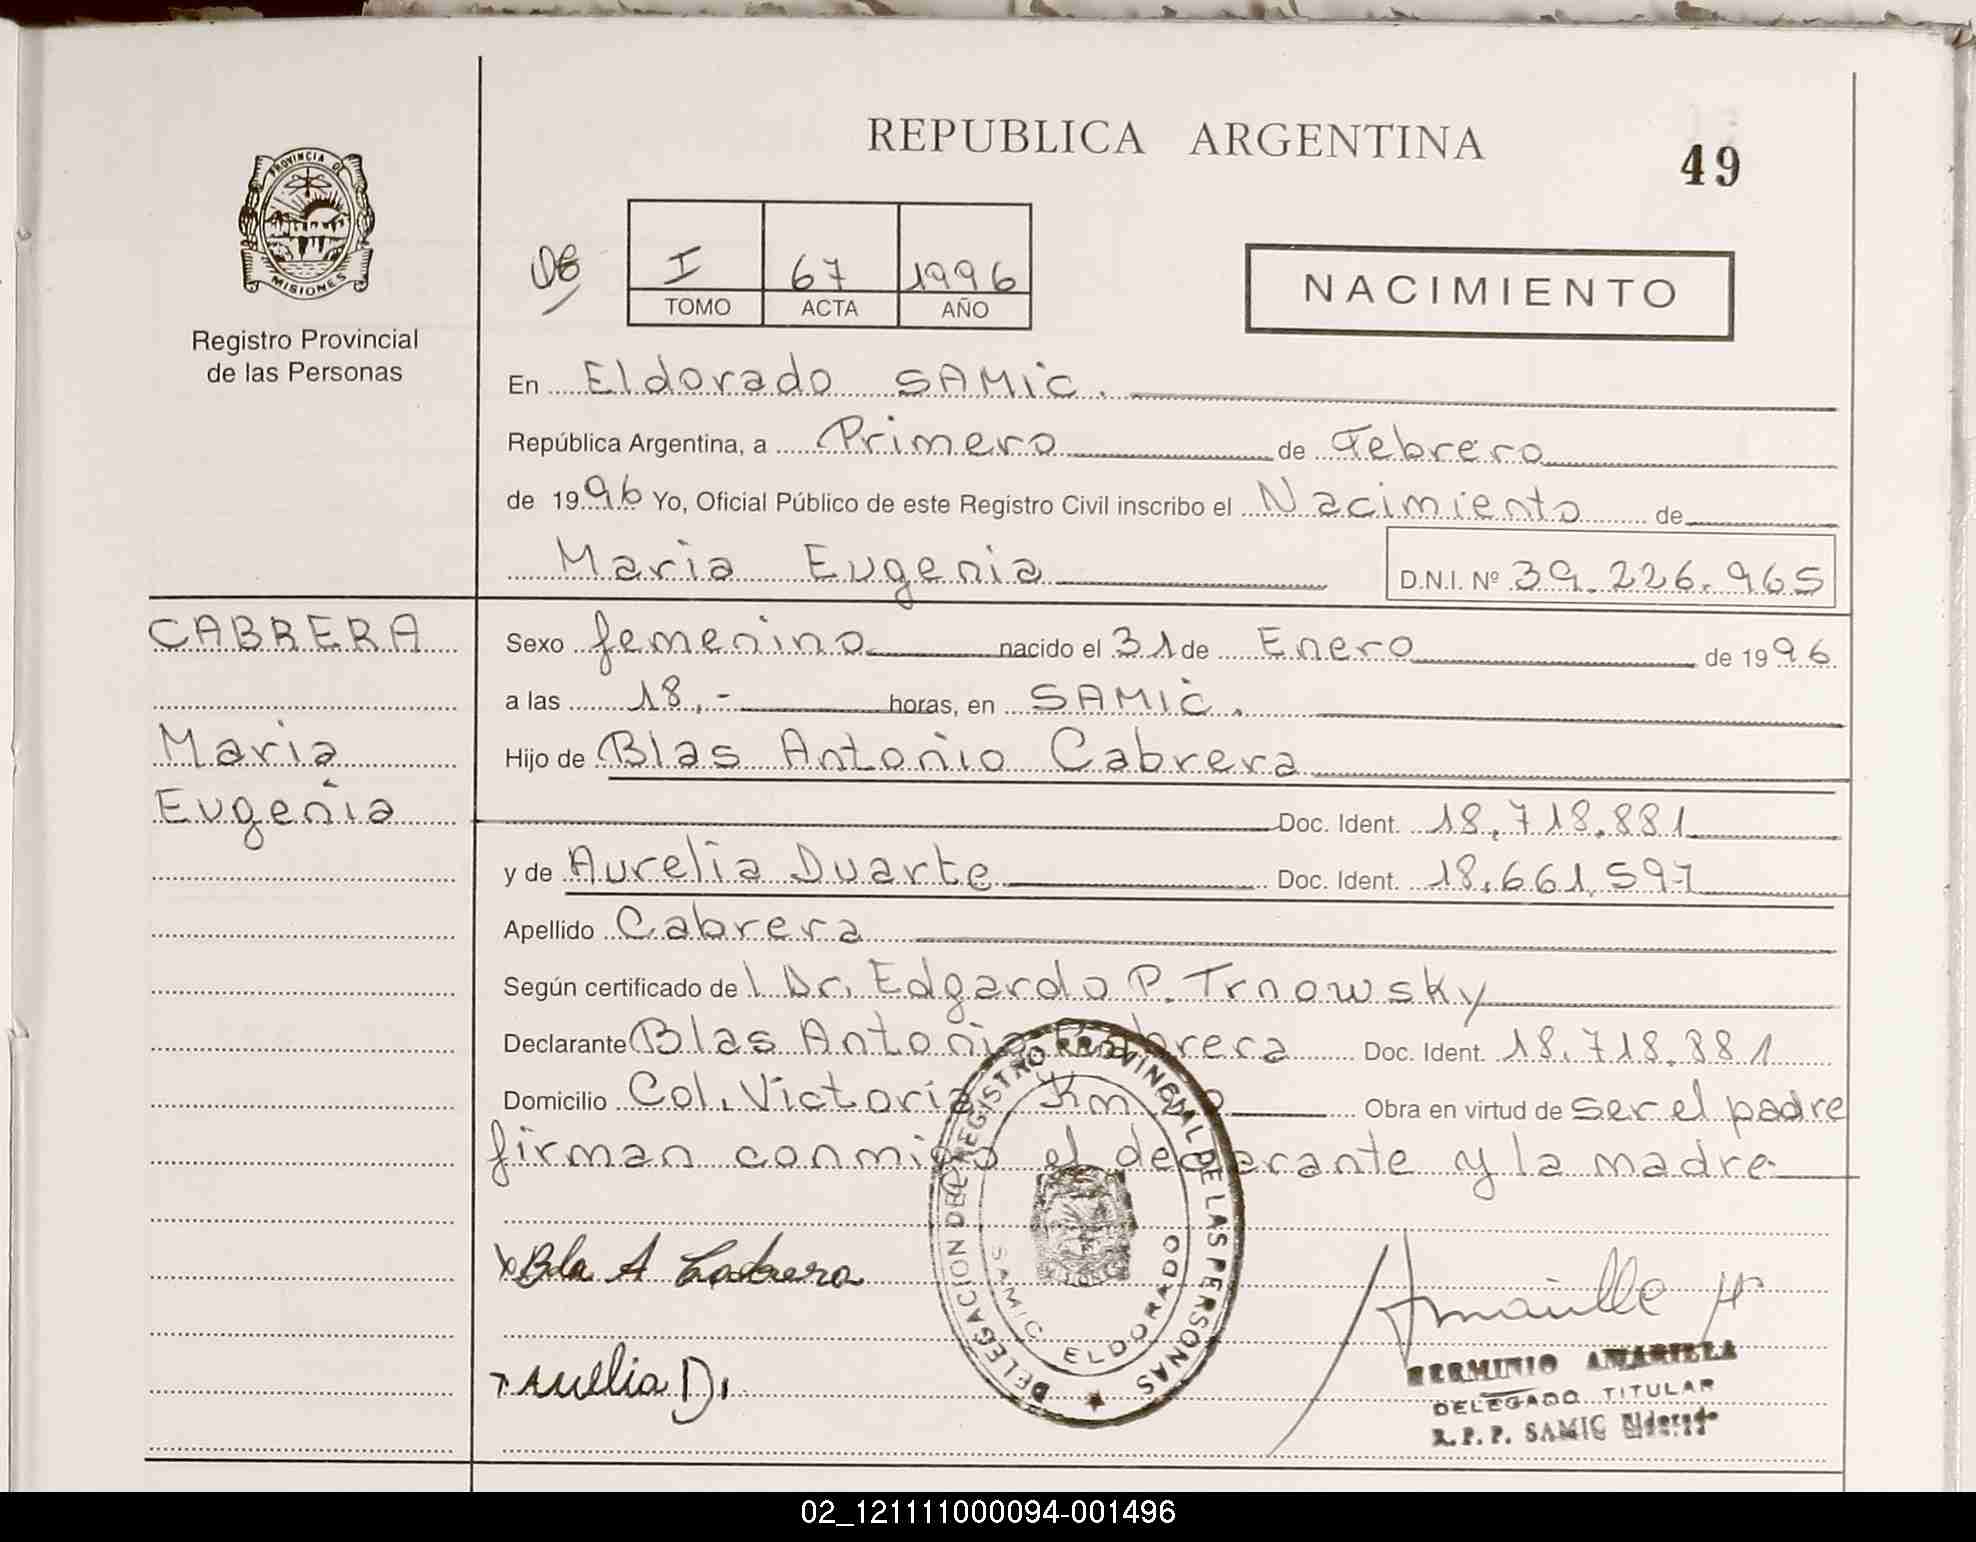 REPUBLICA ARGENTINA
49
PROVINCIA DE
MISIONES
Registro Provincial
de las Personas
I 67 1996
TOMO ACTA AÑO
NACIMIENTO
En Eldorado SAMIC.
República Argentina, a Primero de Febrero
de 1996 Yo, Oficial Público de este Registro Civil inscribo el Nacimiento de
Maria Eugenia D.N.I. Nº 39.226.965
CABRERA
Maria
Eugenia
Sexo femenino nacido el 31 de Enero de 1996
a las 18,- horas, en SAMIC.
Hijo de Blas Antonio Cabrera
Doc. Ident. 18.718.881
y de Aurelia Duarte Doc. Ident. 18.661.597
Apellido Cabrera
Según certificado de l Dr. Edgardo P. Trnowsky
Declarante Blas Antonio Cabrera Doc. Ident. 18.718.881
Domicilio Col. Victoria Km Obra en virtud de ser el padre
firman conmigo el declarante y la madre
DELEGACION DEL REGISTRO PROVINCIAL DE LAS PERSONAS
SAMIC ELDORADO
Bla A Cabrera
Aurelia D.
HERMINIO AMARILLA
DELEGADO TITULAR
R.P.P. SAMIC Eldorado
02_121111000094-001496